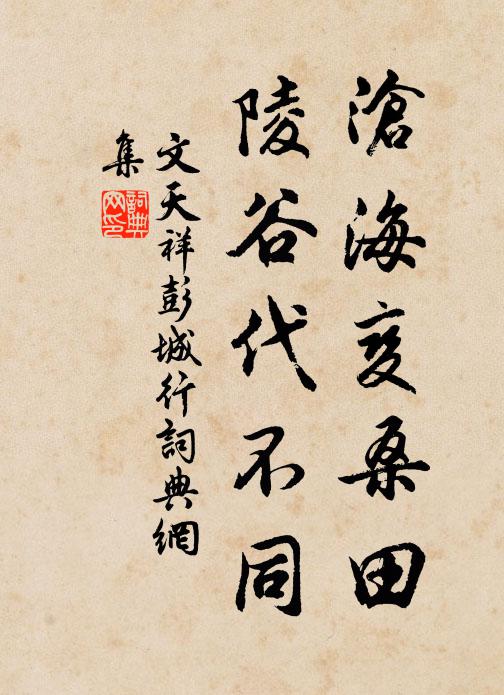 滄海变桑田
陵谷代不同
文天祥彭城行詞典網
集
詞典
网印